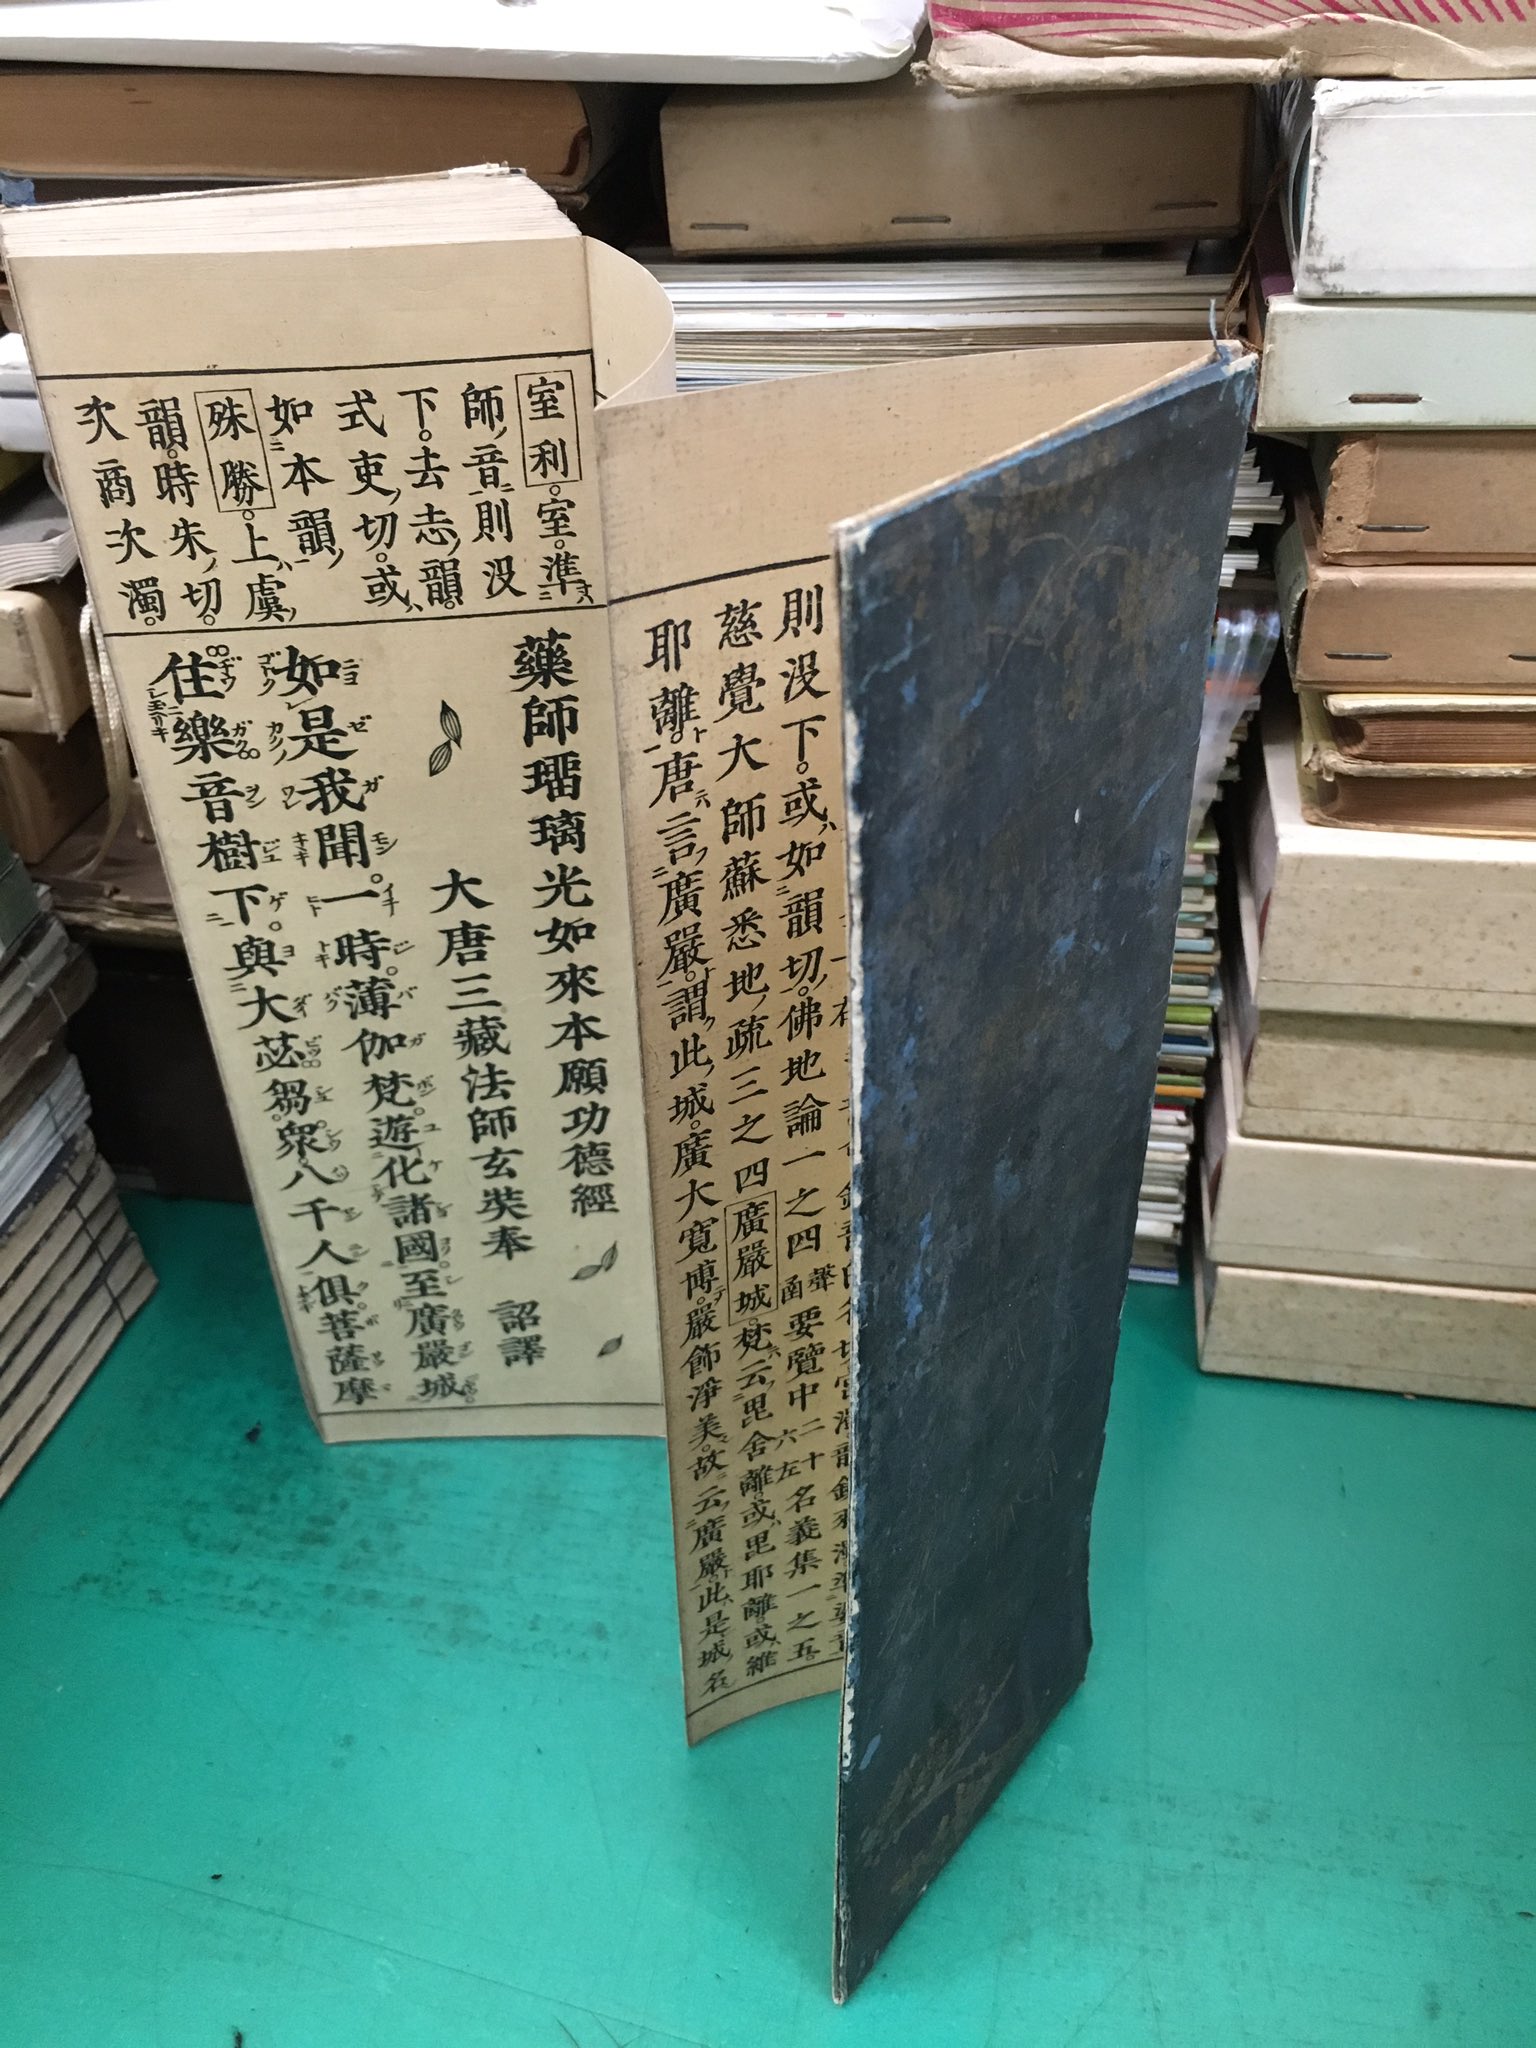 則没下。或如韻切。佛地論一之四聲函要覽中二十六左名義集一之五。
慈覺大師蘇悉地疏三之四廣嚴城。梵云毘舍離。或毘耶離。或維
耶離。唐言廣嚴。謂此城。廣大寬博。嚴飾淨美。故云廣嚴。此是城名
室利。室。準
師音則没
下。去志韻。
式吏切。或
如本韻
殊勝。上虞
韻。時朱切。
次商次濁。
藥師瑠璃光如來本願功德經
大唐三藏法師玄奘奉 詔譯
如是我聞。一時。薄伽梵。遊化諸國。至廣嚴城
住樂音樹下。與大苾芻。衆。八千人俱。菩薩摩